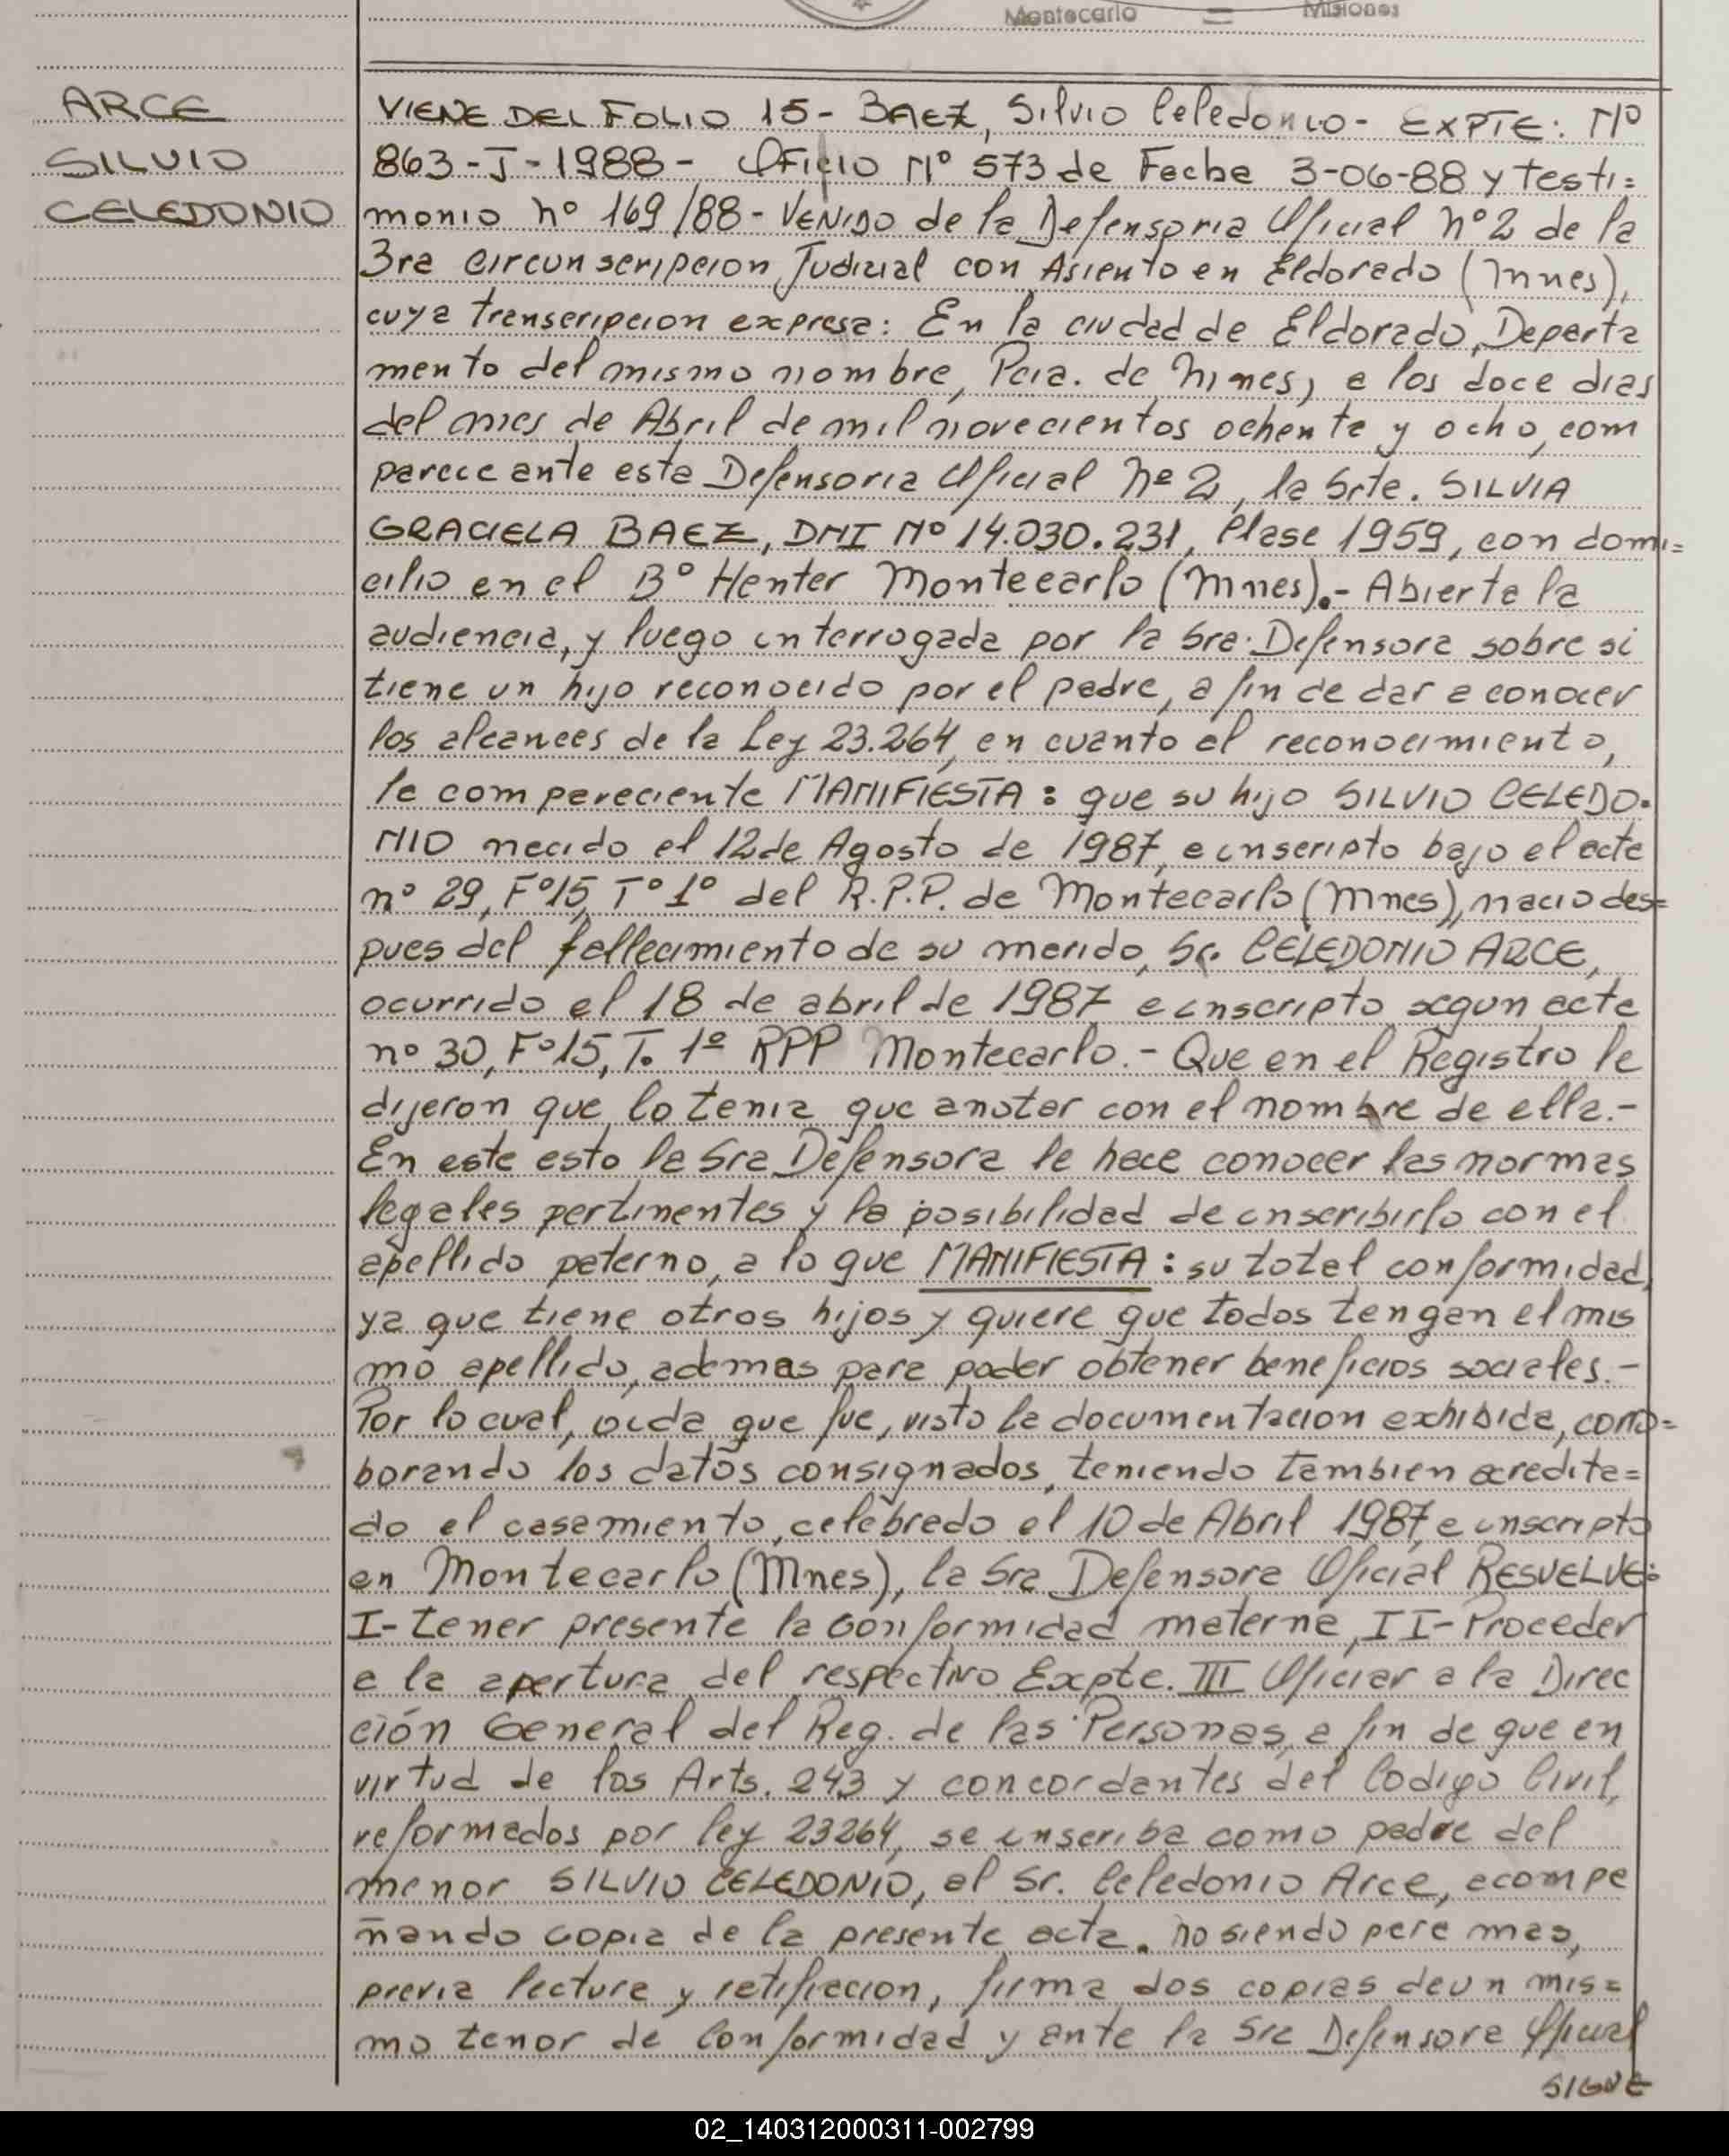 Montecarlo Misiones
ARCE
SILVIO
CELEDONIO
VIENE DEL FOLIO 15- BAEZ, Silvio Celedonio- EXPTE: Nº
863-J-1988- Oficio Nº 573 de Fecha 3-06-88 y testi=
monio nº 169/88- VENIDO de la Defensoria Oficial nº 2 de la
3ra circunscripcion Judicial con Asiento en Eldorado (Mnes),
cuya transcripcion expresa: En la ciudad de Eldorado, Departa
mento del mismo nombre, Pcia. de Mnes, a los doce dias
del mes de Abril de mil novecientos ochenta y ocho, com
parece ante esta Defensoria Oficial nº 2, la Srta. SILVIA
GRACIELA BAEZ, DNI Nº 14.030.231, Clase 1959, con domi=
cilio en el Bº Henter Montecarlo (Mnes).- Abierta la
audiencia, y luego interrogada por la Sra. Defensora sobre si
tiene un hijo reconocido por el padre, a fin de dar a conocer
los alcances de la Ley 23.264, en cuanto al reconocimiento,
la compareciente MANIFIESTA: que su hijo SILVIO CELEDO-
NIO nacido el 12 de Agosto de 1987, e inscripto bajo el acta
nº 29, Fº15, Tº 1º del R.P.P. de Montecarlo (Mnes), nacio des=
pues del fallecimiento de su marido, Sr. CELEDONIO ARCE,
ocurrido el 18 de abril de 1987 e inscripto segun acta
nº 30, Fº15, T. 1º RPP Montecarlo.- Que en el Registro le
dijeron que lo tenia que anotar con el nombre de ella.-
En este esto la Sra Defensora le hace conocer las normas
legales pertinentes y la posibilidad de inscribirlo con el
apellido paterno, a lo que MANIFIESTA: su total conformidad,
ya que tiene otros hijos y quiere que todos tengan el mis
mo apellido, ademas para poder obtener beneficios sociales.-
Por lo cual, oida que fue, visto la documentacion exhibida, corro=
borando los datos consignados, teniendo tambien acredita=
do el casamiento, celebrado el 10 de Abril 1987, e inscripto
en Montecarlo (Mnes), la Sra Defensora Oficial RESUELVE:
I- tener presente la conformidad materna, II- Proceder
a la apertura del respectivo Expte. III Oficiar a la Direc
ción General del Reg. de las Personas, a fin de que en
virtud de los Arts. 243 y concordantes del Codigo Civil,
reformados por ley 23264, se inscriba como padre del
menor SILVIO CELEDONIO, al Sr. Celedonio Arce, acompa
ñando copia de la presente acta. no siendo para mas,
previa lectura y ratificacion, firma dos copias de un mis=
mo tenor de Conformidad y ante la Sra Defensora Oficial
SIGUE
02_140312000311-002799